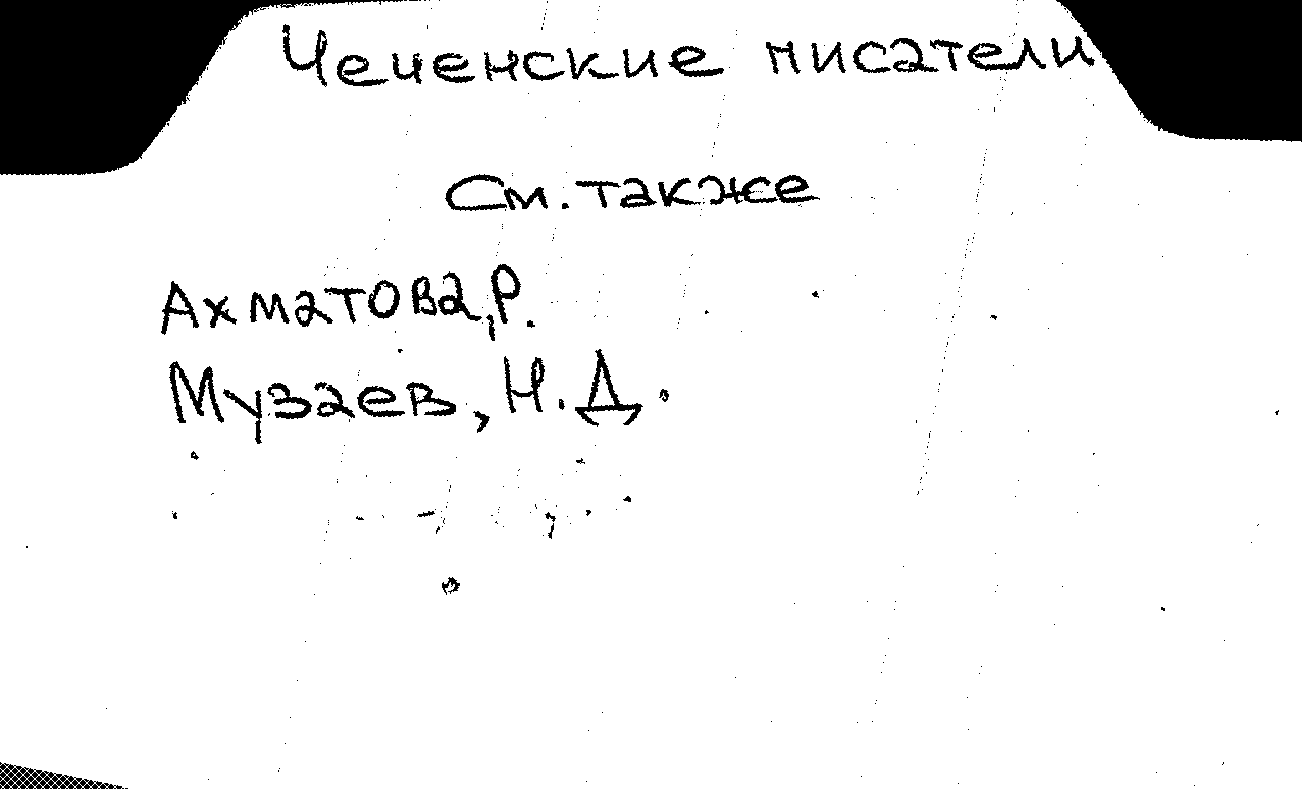 Чеченские писатели
См. также
Ахматова, Р.
Музаев, Н.Д.